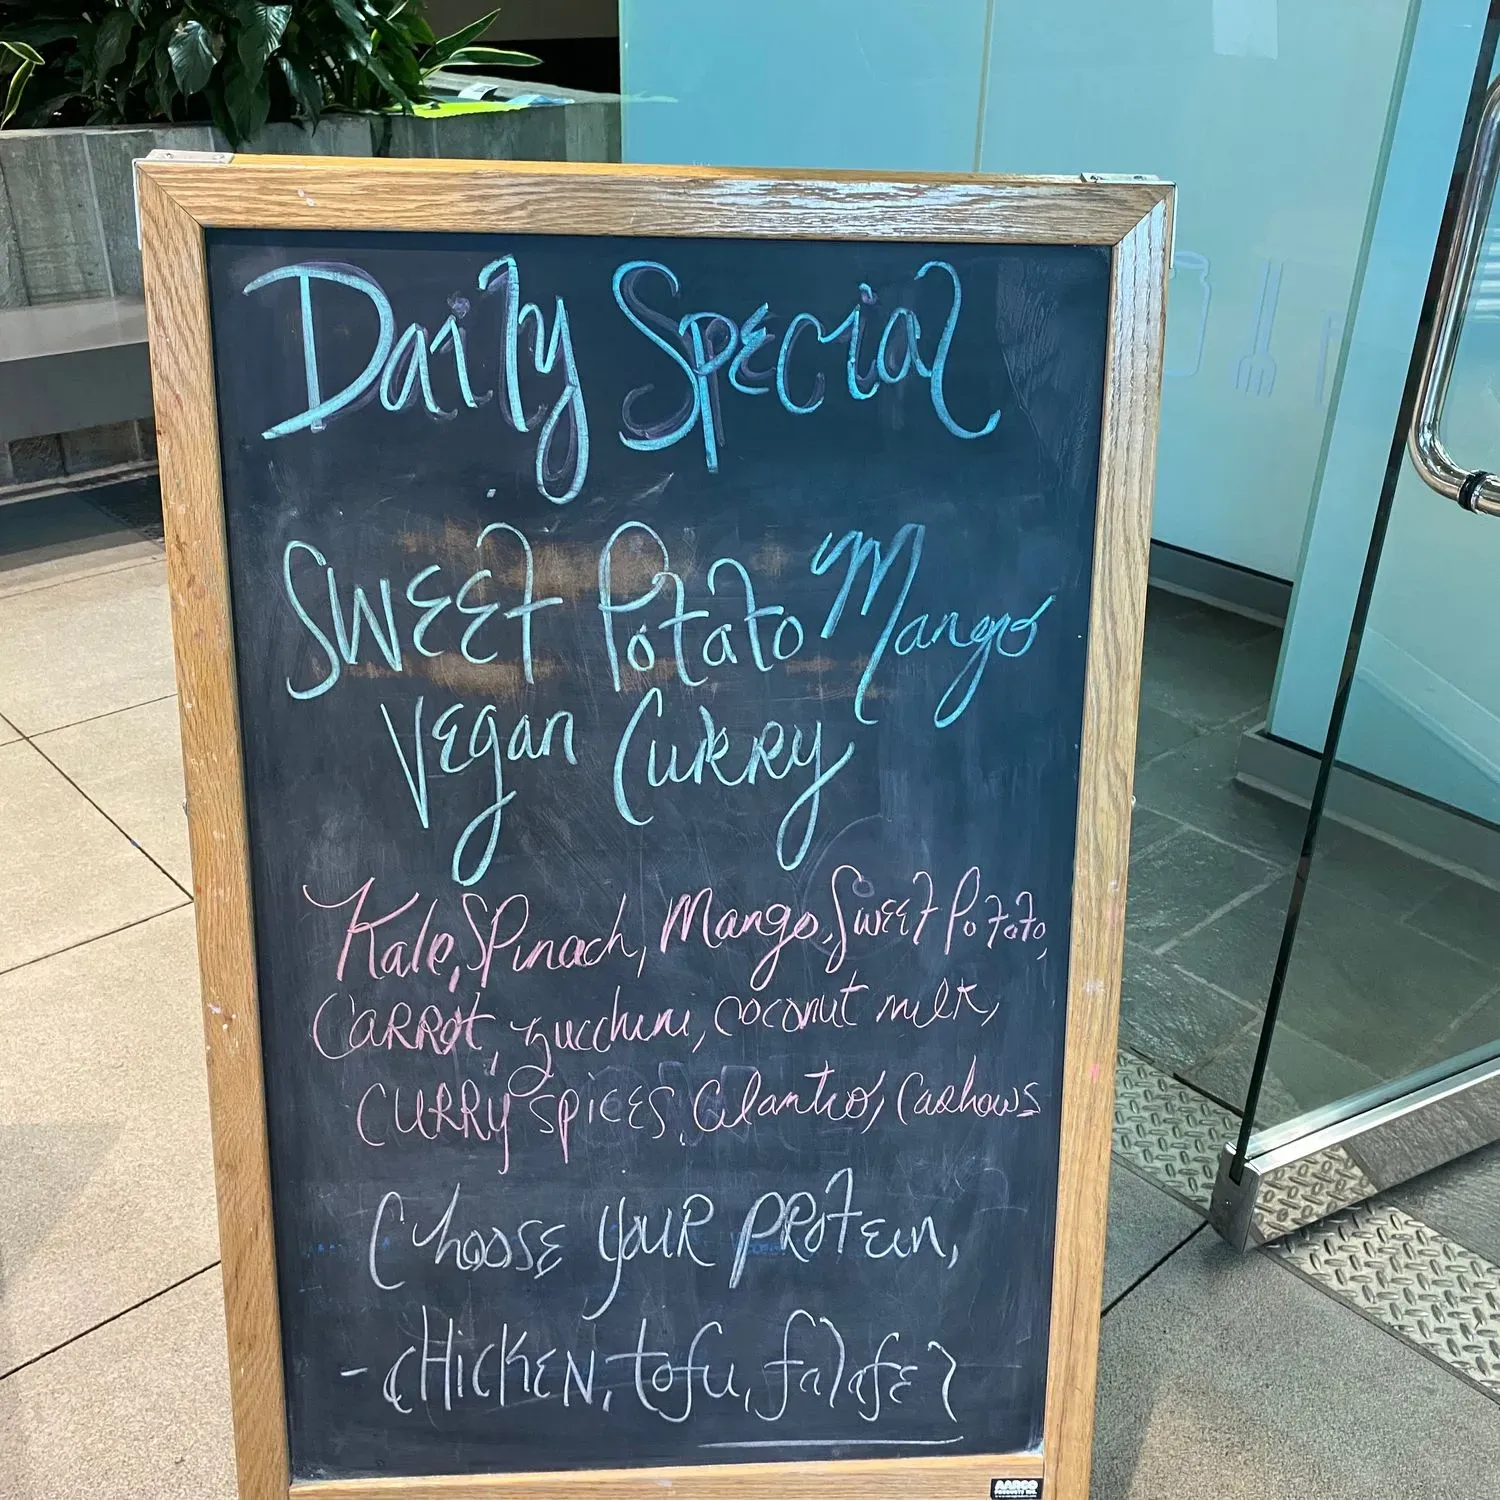 Daily Special
Sweet Potato Mango
Vegan Curry
Kale, Spinach, Mango, Sweet Potato,
Carrot, zucchini, coconut milk,
Curry spices, Cilantro, Cashows
Choose your protein,
- Chicken, tofu, falafel
AARCO